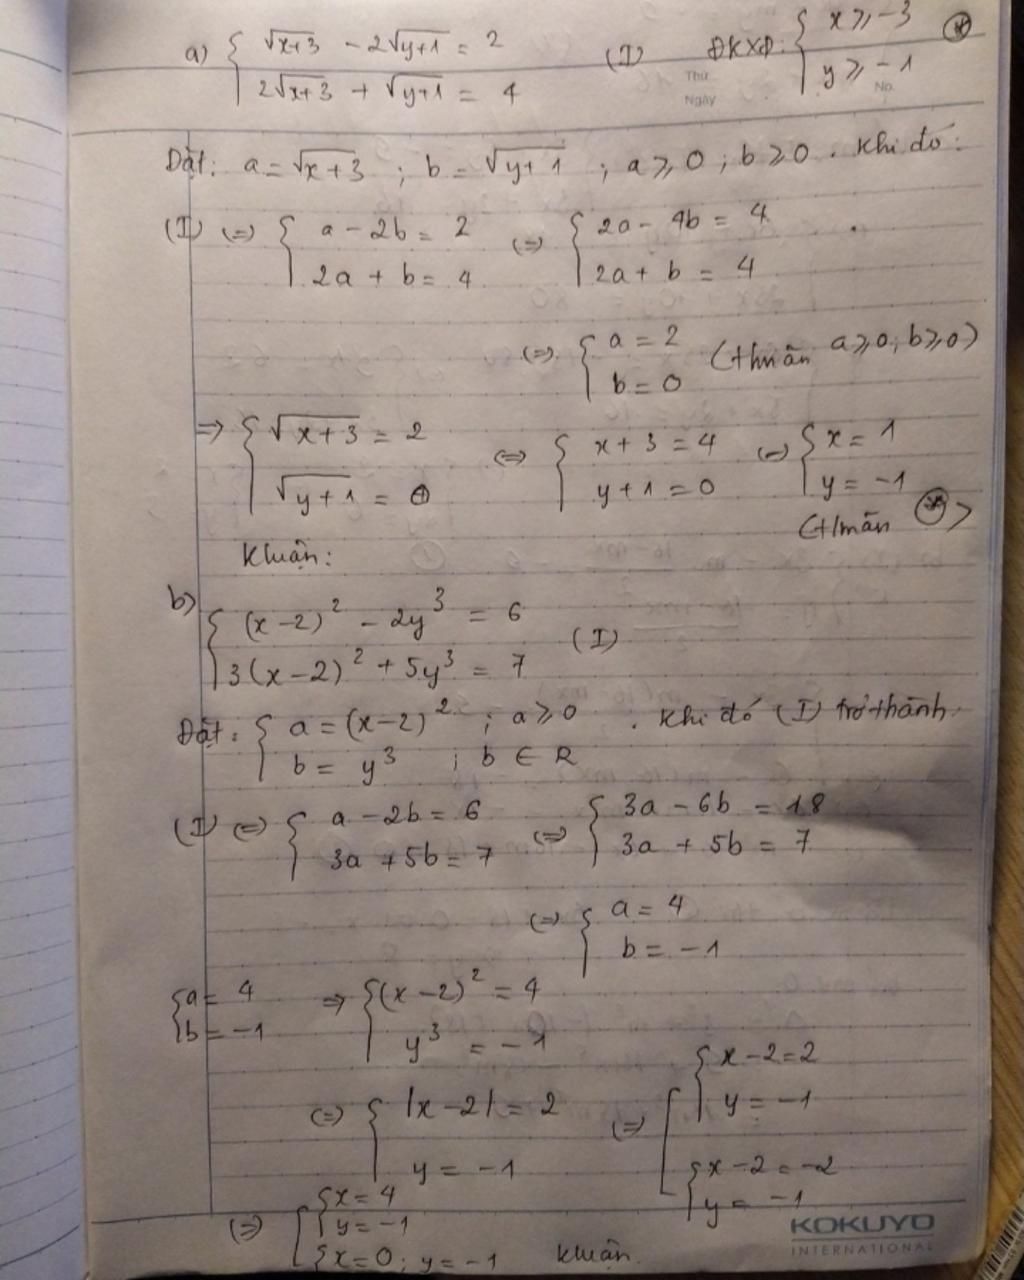 a) { √(x+3) - 2√(y+1) = 2
2√(x+3) + √(y+1) = 4 (I) ĐKXĐ: { x ≥ -3
y ≥ -1 (*)
Thứ
Ngày
No.
Đặt: a = √(x+3) ; b = √(y+1) ; a ≥ 0 ; b ≥ 0 . Khi đó:
(I) (=) { a - 2b = 2 (=) { 2a - 4b = 4
2a + b = 4 2a + b = 4
(=) { a = 2 (thỏa mãn a ≥ 0, b ≥ 0)
b = 0
=> { √(x+3) = 2 (=) { x + 3 = 4 (=) { x = 1
√(y+1) = 0 y + 1 = 0 y = -1
(t/mãn (*))
Kluận:
b) { (x-2)² - 2y³ = 6
3(x-2)² + 5y³ = 7 (I)
Đặt: { a = (x-2)² ; a ≥ 0 . Khi đó (I) trở thành
b = y³ ; b ∈ R
(I) (=) { a - 2b = 6 (=) { 3a - 6b = 18
3a + 5b = 7 3a + 5b = 7
(=) { a = 4
b = -1
{ a = 4 => { (x-2)² = 4
b = -1 y³ = -1
(=) { |x-2| = 2 (=) [ { x-2 = 2
y = -1 y = -1
{ x-2 = -2
y = -1
(=) [ { x = 4
y = -1
{ x = 0 ; y = -1 kluận.
KOKUYO
INTERNATIONAL